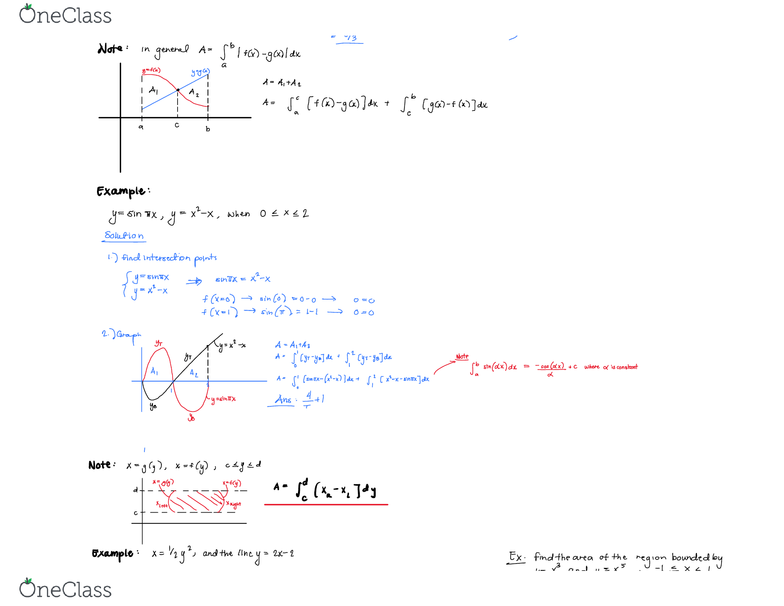 OneClass
= 73
Note: in general A = ∫_a^b |f(x)-g(x)| dx
y=f(x) y=g(x)
A₁ A₂
a c b
A = A₁+A₂
A = ∫_a^c [f(x)-g(x)]dx + ∫_c^b [g(x)-f(x)]dx
Example:
y= sin πx, y = x²-x, when 0 ≤ x ≤ 2
Solution
1.) find intersection points
{ y = sinπx
y = x²-x
⇒ sinπx = x²-x
f(x=0) → sin(0) = 0-0 → 0=0
f(x=1) → sin(π) = 1-1 → 0=0
2.) Graph
y_T y_T y=x²-x
A₁ A₂
1
y_B y_B y=sinπx
A = A₁+A₂
A = ∫_0^1 [y_T-y_B]dx + ∫_1^2 [y_T-y_B]dx
A = ∫_0^1 [sinπx-(x²-x)]dx + ∫_1^2 [x²-x-sinπx]dx
Ans: 4/π +1
Note
∫_a^b sin(αx)dx = -cos(αx)/α + c where α is constant
Note: x = g(y), x = f(y), c ≤ y ≤ d
x=g(y) x=f(y)
d
x_left x_right
c
A = ∫_c^d [x_R - x_L] dy
Example: x = ½ y², and the line y = 2x-2
Ex. find the area of the region bounded by
x³ and y = x⁵, -1 ≤ x ≤ 1
OneClass